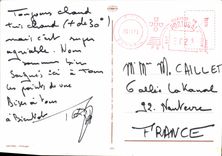 Toujours chaud
très chaud (+ de 30°)
mais c'est super
agréable. Nous
sommes bien
ici à Tous
les points de vue
Bises à Vous
à Bientôt
M. CAILLET
92. Nanterre
FRANCE